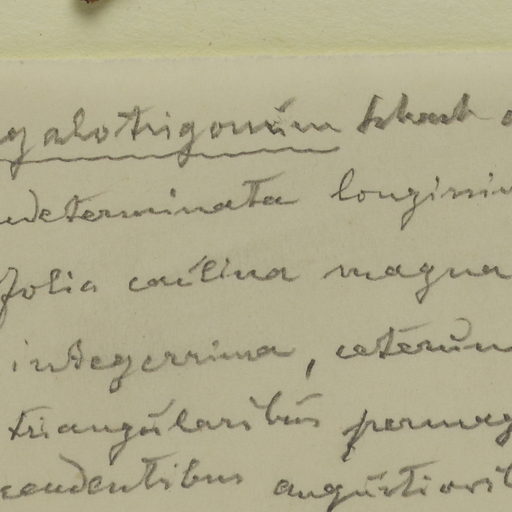 galotrigonum Schack
indeterminata longissi
folia caulina magna
integerrima, ceterum
triangularibus permag
cendentibus angustiori